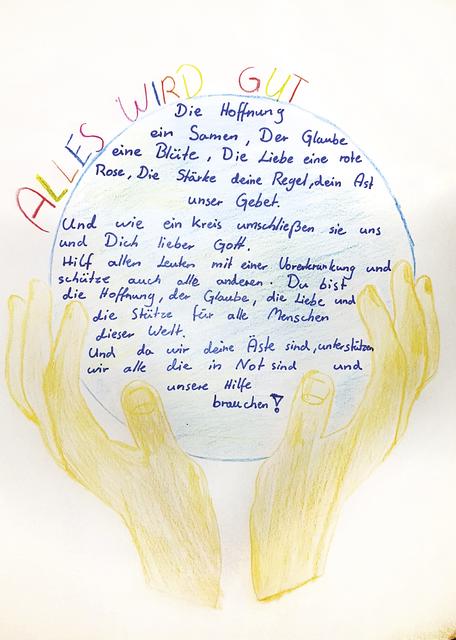 ALLES WIRD GUT
Die Hoffnung
ein Samen, Der Glaube
eine Blüte, Die Liebe eine rote
Rose, Die Stärke deine Regel, dein Ast
unser Gebet.
Und wie ein Kreis umschließen sie uns
und Dich lieber Gott.
Hilf allen Leuten mit einer Vorerkrankung und
schütze auch alle anderen. Du bist
die Hoffnung, der Glaube, die Liebe und
die Stütze für alle Menschen
dieser Welt.
Und da wir deine Äste sind, unterstützen
wir alle die in Not sind und
unsere Hilfe
brauchen!